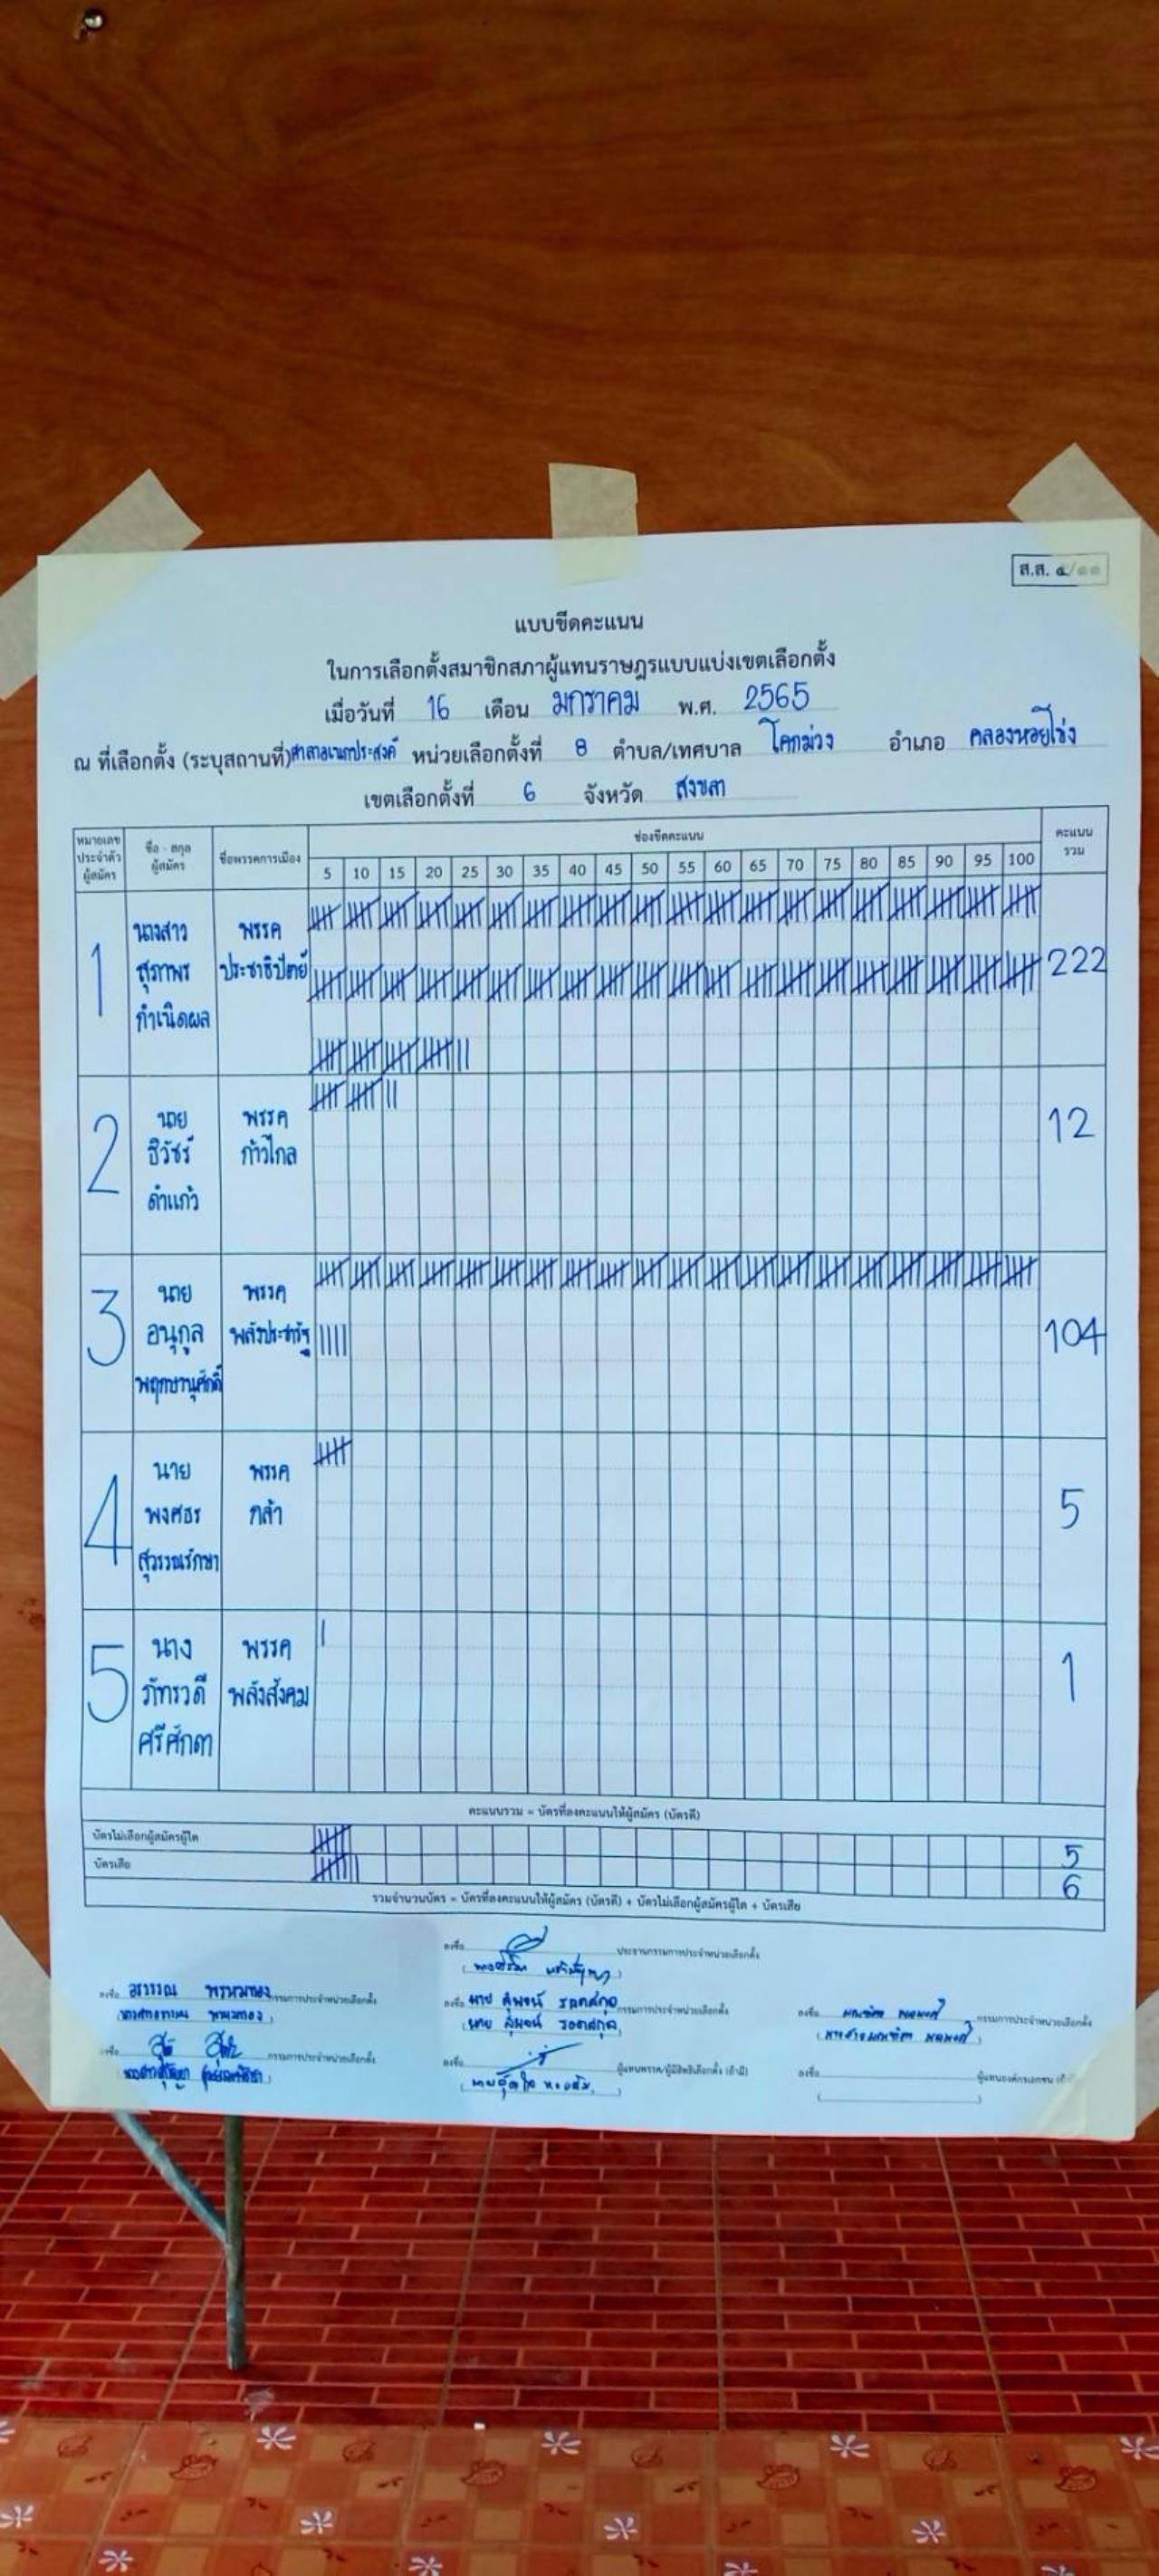 ส.ส. ๕/๑๑
แบบขีดคะแนน
ในการเลือกตั้งสมาชิกสภาผู้แทนราษฎรแบบแบ่งเขตเลือกตั้ง
เมื่อวันที่ 16 เดือน มกราคม พ.ศ. 2565
ณ ที่เลือกตั้ง (ระบุสถานที่) ศาลาอเนกประสงค์ หน่วยเลือกตั้งที่ 8 ตำบล/เทศบาล โคกม่วง อำเภอ คลองหอยโข่ง
เขตเลือกตั้งที่ 6 จังหวัด สงขลา
หมายเลขประจำตัวผู้สมัคร ชื่อ - สกุล ผู้สมัคร ชื่อพรรคการเมือง ช่องขีดคะแนน คะแนนรวม
5 10 15 20 25 30 35 40 45 50 55 60 65 70 75 80 85 90 95 100
1 นางสาว สุภาพร กำเนิดผล พรรค ประชาธิปัตย์ 222
2 นาย ธิวัชร์ ดำแก้ว พรรค ก้าวไกล 12
3 นาย อนุกูล พฤกษานุศักดิ์ พรรค พลังประชารัฐ 104
4 นาย พงศธร สุวรรณรักษา พรรค กล้า 5
5 นาง ภัทรวดี ศรีศักดา พรรค พลังสังคม 1
คะแนนรวม = บัตรที่ลงคะแนนให้ผู้สมัคร (บัตรดี)
บัตรไม่เลือกผู้สมัครผู้ใด 5
บัตรเสีย 6
รวมจำนวนบัตร = บัตรที่ลงคะแนนให้ผู้สมัคร (บัตรดี) + บัตรไม่เลือกผู้สมัครผู้ใด + บัตรเสีย
ลงชื่อ ประธานกรรมการประจำหน่วยเลือกตั้ง
ลงชื่อ กรรมการประจำหน่วยเลือกตั้ง ลงชื่อ กรรมการประจำหน่วยเลือกตั้ง ลงชื่อ กรรมการประจำหน่วยเลือกตั้ง
ลงชื่อ กรรมการประจำหน่วยเลือกตั้ง ลงชื่อ ผู้แทนพรรค/ผู้มีสิทธิเลือกตั้ง (ถ้ามี) ลงชื่อ ผู้แทนองค์กรเอกชน